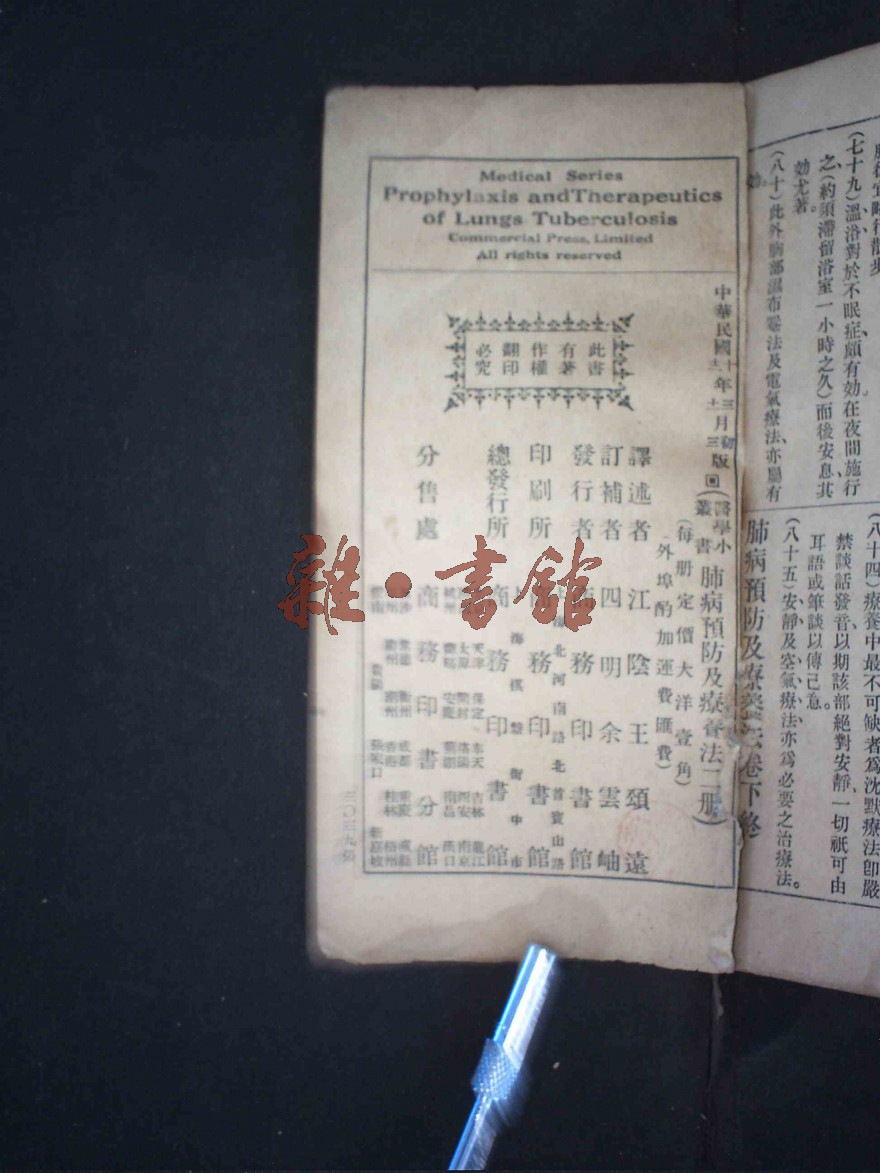 Medical Series
Prophylaxis and Therapeutics
of Lungs Tuberculosis
Commercial Press, Limited
All rights reserved
此書
有著
作權
翻印
必究
(醫學小叢書 肺病預防及療養法二册)
(每册定價大洋壹角)
外埠酌加運費匯費)
譯述者 江陰王頌遠
訂補者 四明余雲岫
發行者 商務印書館
北河南路北首寶山路
印刷所 商務印書館
海棋盤街中市
總發行所 商務印書館
分售處 商務印書分館
(七十九)溫浴對於不眠症頗有効。在夜間施行
之、(約須滯留浴室一小時之久)而後安息、其
効尤著。
(八十)此外胸部濕布卷法及電氣療法、亦屬有
効。
(八十四)療養中最不可缺者爲沈默療法、卽嚴
禁談話發音、以期該部絕對安靜、一切祇可由
耳語或筆談以傳己意。
(八十五)安靜及空氣療法、亦爲必要之治療法。
肺病預防及療養法卷下終
雜·書館